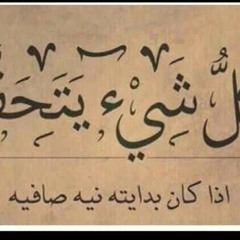 لُّ شَيْء يَتَحَقَّ
اذا كان بدايته نيه صافيه